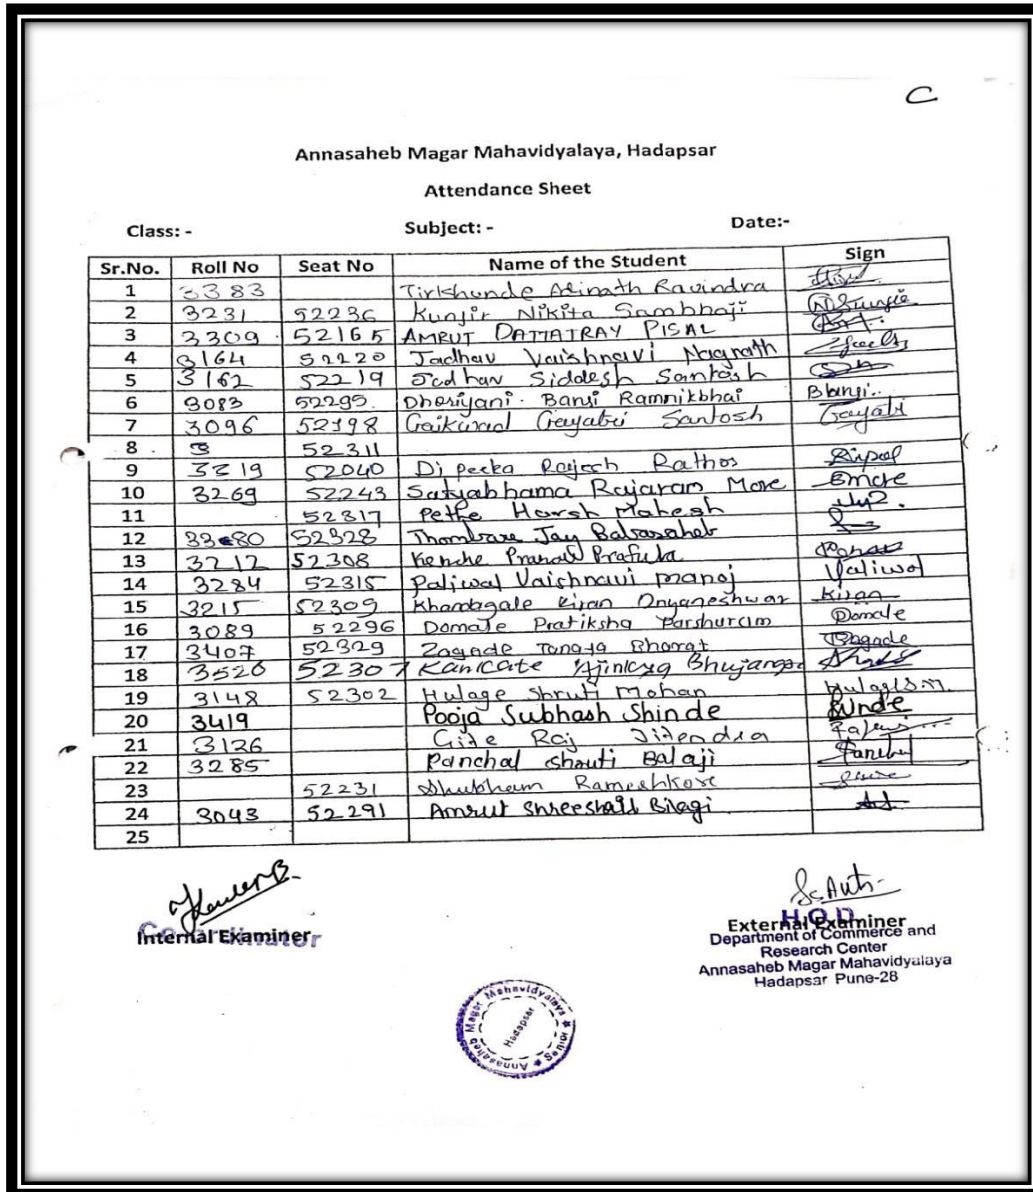 C
Annasaheb Magar Mahavidyalaya, Hadapsar
Attendance Sheet
Class: - Subject: - Date:-
Sr.No. Roll No Seat No Name of the Student Sign
1 3383 Tirkhunde Adinath Ravindra
2 3231 52236 Kunjir Nikita Sambhaji
3 3309 52165 AMRUT DATTATRAY PISAL
4 3164 52220 Jadhav Vaishnavi Nagnath
5 3162 52219 Jadhav Siddesh Santosh
6 3083 52295 Dhosiyani. Bansi Ramnikbhai Bbansi.
7 3096 52198 Gaikwad Gayatri Santosh Gayatri
8 52311
9 3319 52040 Dipeeka Rajesh Rathos
10 3269 52243 Satyabhama Rajaram More Bmore
11 52317 Pethe Harsh Mahesh
12 3380 52328 Thombare Jay Babasaheb
13 3212 52308 Kenche Pranav Prafula
14 3284 52315 Paliwal Vaishnavi manoj Paliwal
15 3215 52309 Khandagale Kiran Dnyaneshwar Kiran
16 3089 52296 Domale Pratiksha Parshuram Domale
17 3407 52329 Zagade Tanaya Bharat Zagade
18 3520 52307
19 3148 52302 Hulage Shruti Mohan Hulage S.M.
20 3419 Pooja Subhash Shinde
21 3126 Gite Raj Jitendra
22 3285 Panchal Shruti Balaji Panchal
23 52231 Shubham Rameshkore
24 3043 52291 Amrut Shreeshail Bilagi
25
Co-ordinator
Internal Examiner
H.O.D
External Examiner
Department of Commerce and
Research Center
Annasaheb Magar Mahavidyalaya
Hadapsar Pune-28
Annasaheb Magar Mahavidyalaya
Hadapsar